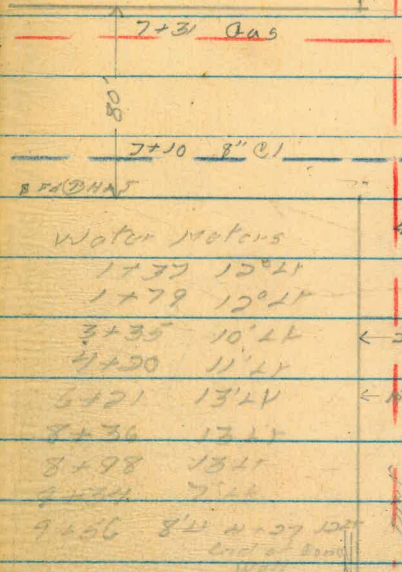 7+31 Gas
80'
7+10 8" CI
Water Meters
1+37 12° Lt
1+79 12° Lt
3+35 10' Lt
4+20 11' Lt
6+21 13' Lt
8+36 13 Lt
8+98 13 Lt
7 Lt
9+56 8' Lt
End of
Wall